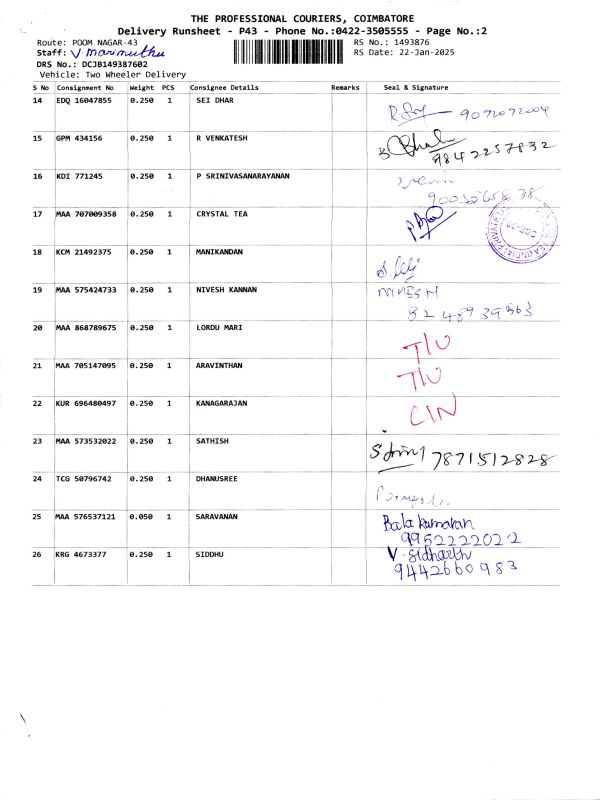 THE PROFESSIONAL COURIERS, COIMBATORE
Delivery Runsheet - P43 - Phone No.:0422-3505555 - Page No.:2
Route: POOM NAGAR-43 RS No.: 1493876
Staff: V. Marimuthu RS Date: 22-Jan-2025
DRS No.: DCJB149387602
Vehicle: Two Wheeler Delivery
S No Consignment No Weight PCS Consignee Details Remarks Seal & Signature
14 EDQ 16047855 0.250 1 SEI DHAR
9072072004
15 GPM 434156 0.250 1 R VENKATESH
9842257832
16 KDI 771245 0.250 1 P SRINIVASANARAYANAN
17 MAA 707009358 0.250 1 CRYSTAL TEA
18 KCM 21492375 0.250 1 MANIKANDAN
19 MAA 575424733 0.250 1 NIVESH KANNAN
20 MAA 868789675 0.250 1 LORDU MARI
T/U
21 MAA 705147095 0.250 1 ARAVINTHAN
T/U
22 KUR 696480497 0.250 1 KANAGARAJAN
C/N
23 MAA 573532022 0.250 1 SATHISH
7871512828
24 TCG 50796742 0.250 1 DHANUSREE
25 MAA 576537121 0.050 1 SARAVANAN Bala kumaran
9952222022
26 KRG 4673377 0.250 1 SIDDHU V. Sidharth
9442660983